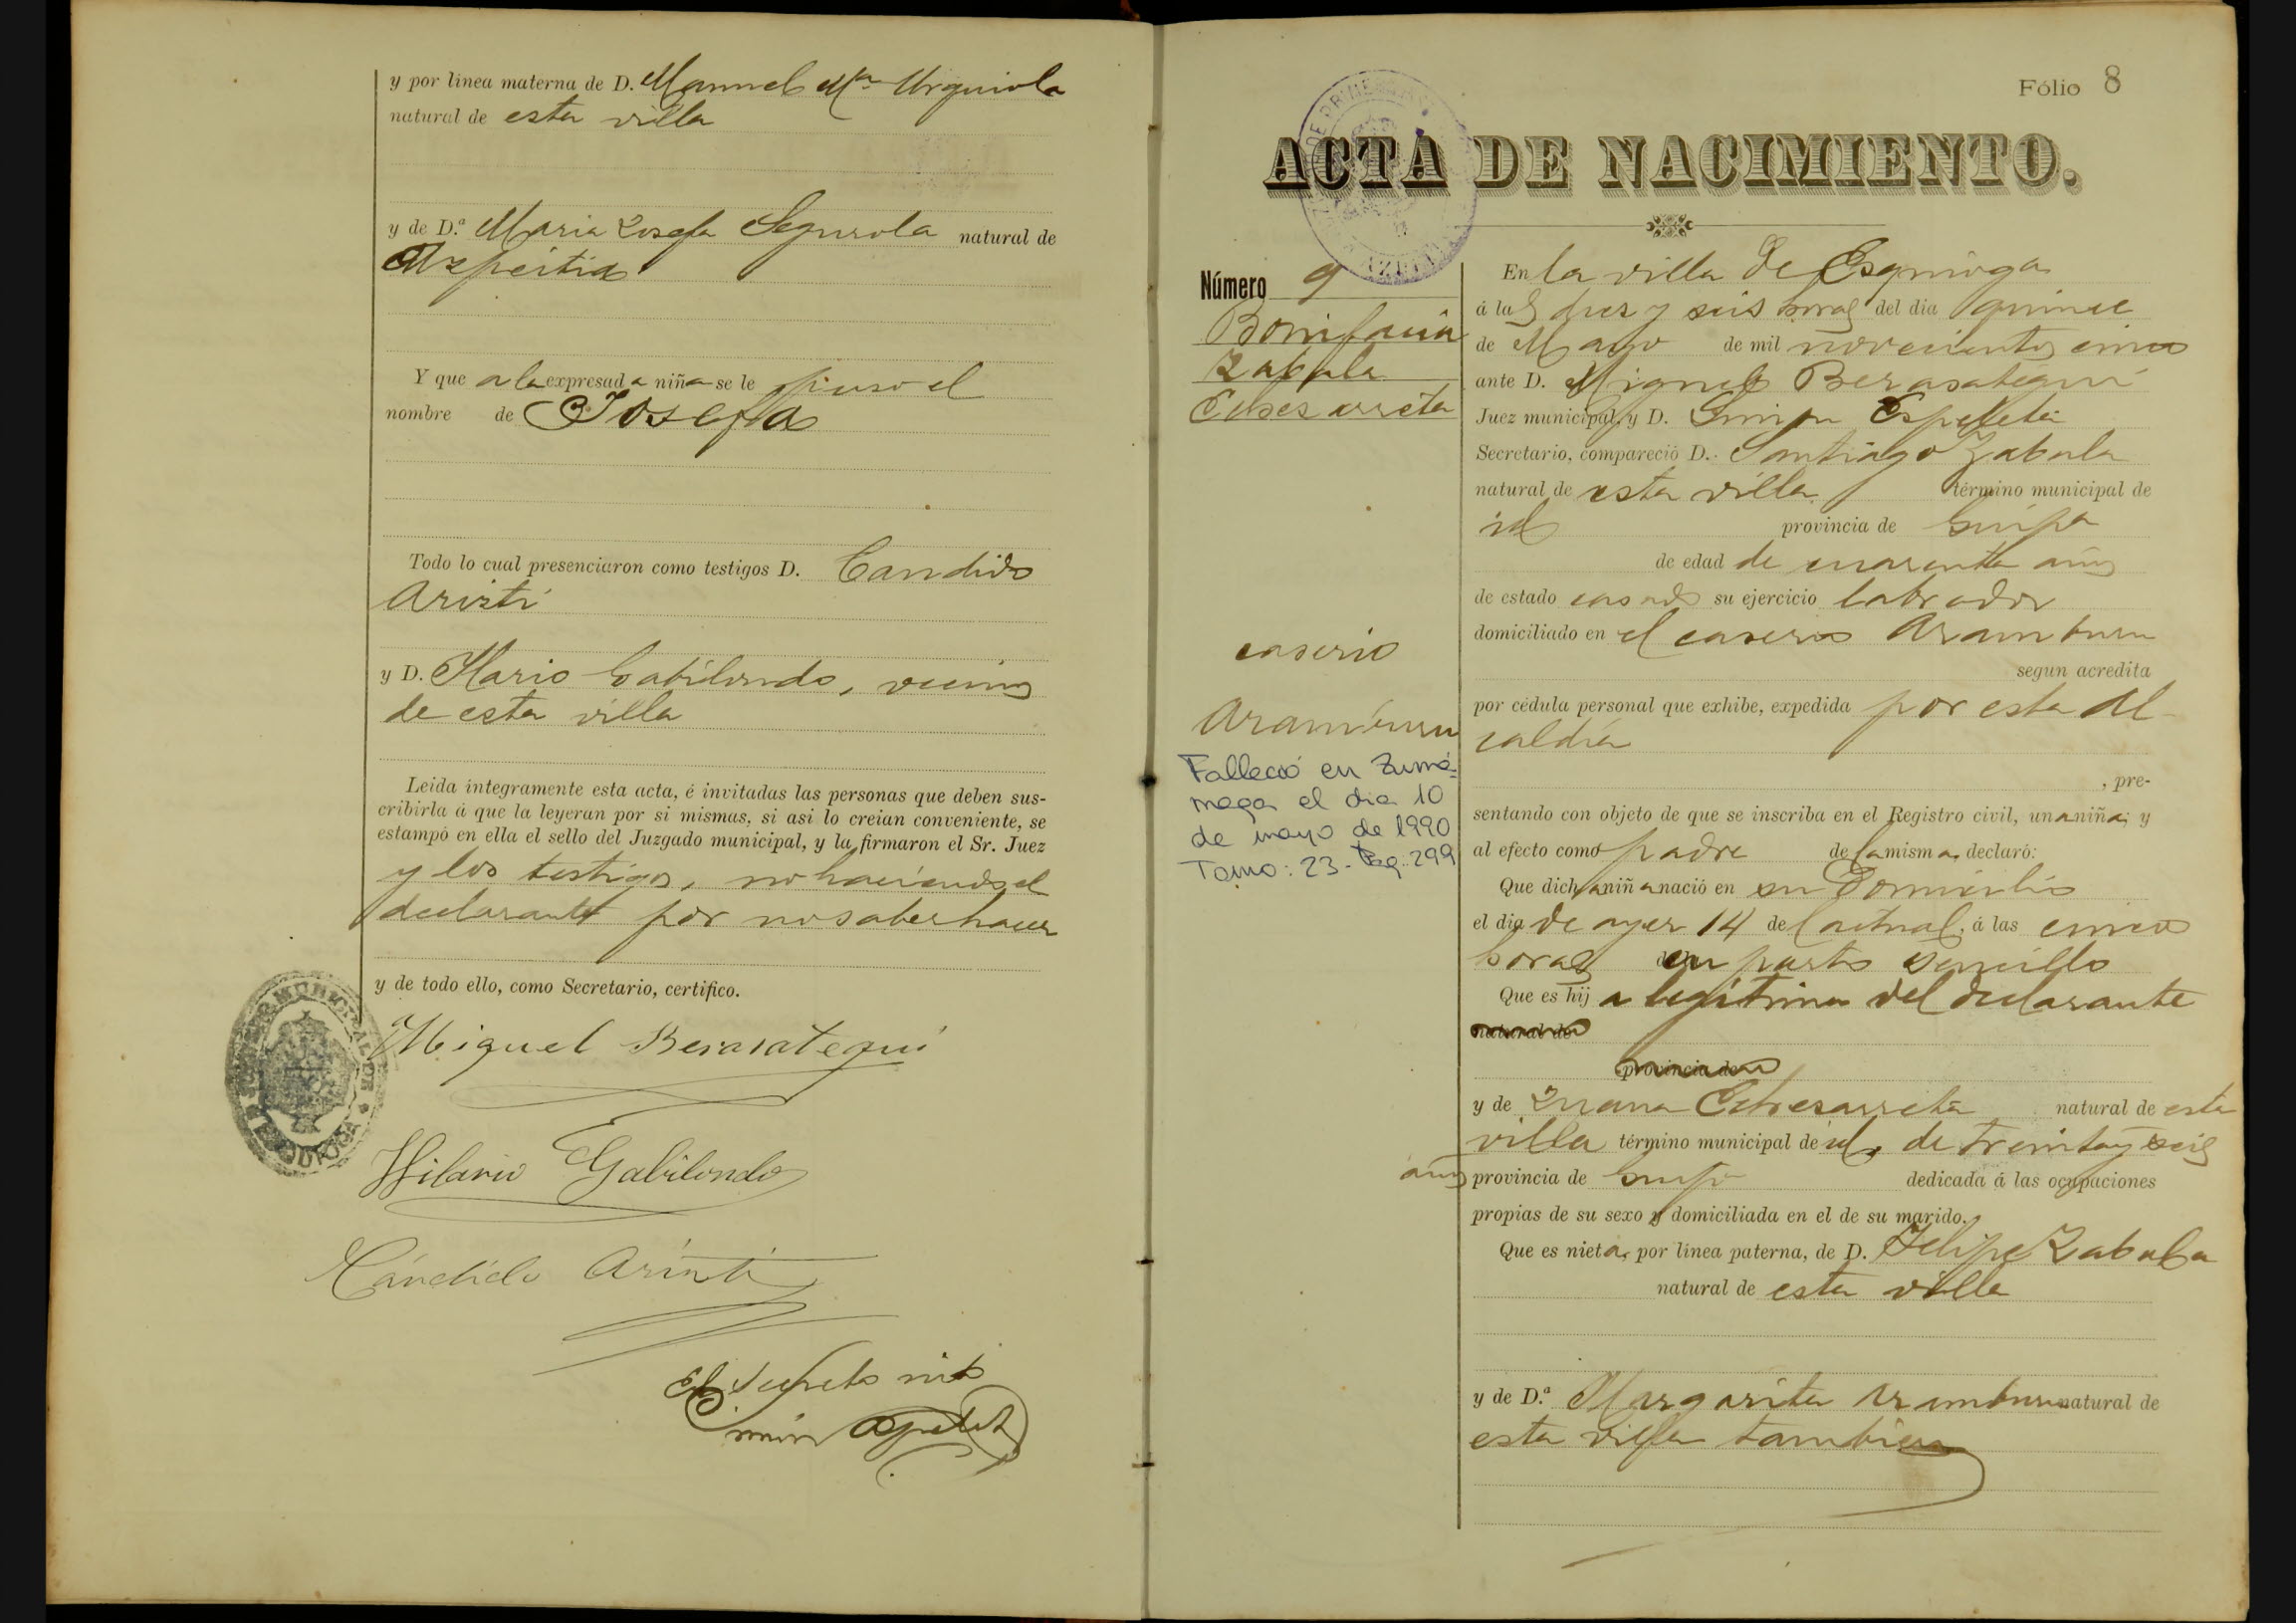 y por línea materna de D. Manuel Mª Urquiola
natural de esta villa
y de D.ª Maria Josefa Segurola natural de
Azpeitia
Y que a la expresada niña se le puso el
nombre de Josefa
Todo lo cual presenciaron como testigos D. Candido
Aristi
y D. Hilario Gabilondo, vecinos
de esta villa
Leida íntegramente esta acta, é invitadas las personas que deben sus-
cribirla á que la leyeran por si mismas, si asi lo creian conveniente, se
estampó en ella el sello del Juzgado municipal, y la firmaron el Sr. Juez
y los testigos, no haciendo el
declarante por no saber hacer
y de todo ello, como Secretario, certifico.
Miguel Berasategui
Hilario Gabilondo
Cándido Aristi
El Secretario
Simón Espeleta
JUZGADO MUNICIPAL DE EZQUIOGA
Fólio 8
ACTA DE NACIMIENTO.
Número 9
Bonifacia
Zabala
Echezarreta
caserio
Aramburu
Falleció en Zumá-
rraga el dia 10
de mayo de 1990
Tomo: 23 - Pag. 299
En la villa de Esquioga
á las diez y seis horas del dia quince
de Mayo de mil novecientos cinco
ante D. Miguel Berasategui
Juez municipal, y D. Simon Espeleta
Secretario, compareció D. Santiago Zabala
natural de esta villa término municipal de
id provincia de Guipa
de edad de cuarenta años
de estado casado su ejercicio labrador
domiciliado en el caserio Aramburu
segun acredita
por cédula personal que exhibe, expedida por esta Al-
caldia
, pre-
sentando con objeto de que se inscriba en el Registro civil, una niña; y
al efecto como padre de la misma, declaró:
Que dicha niña nació en su Domicilio
el dia de ayer 14 del actual, á las cinco
horas en parto sencillo
Que es hija legitima del declarante
natural de
provincia de
y de Juana Echesarreta natural de esta
villa término municipal de id, de treinta y seis
años provincia de Guipa dedicada á las ocupaciones
propias de su sexo y domiciliada en el de su marido.
Que es nieta, por línea paterna, de D. Felipe Zabala
natural de esta villa
y de D.ª Margarita Aramburu natural de
esta villa tambien